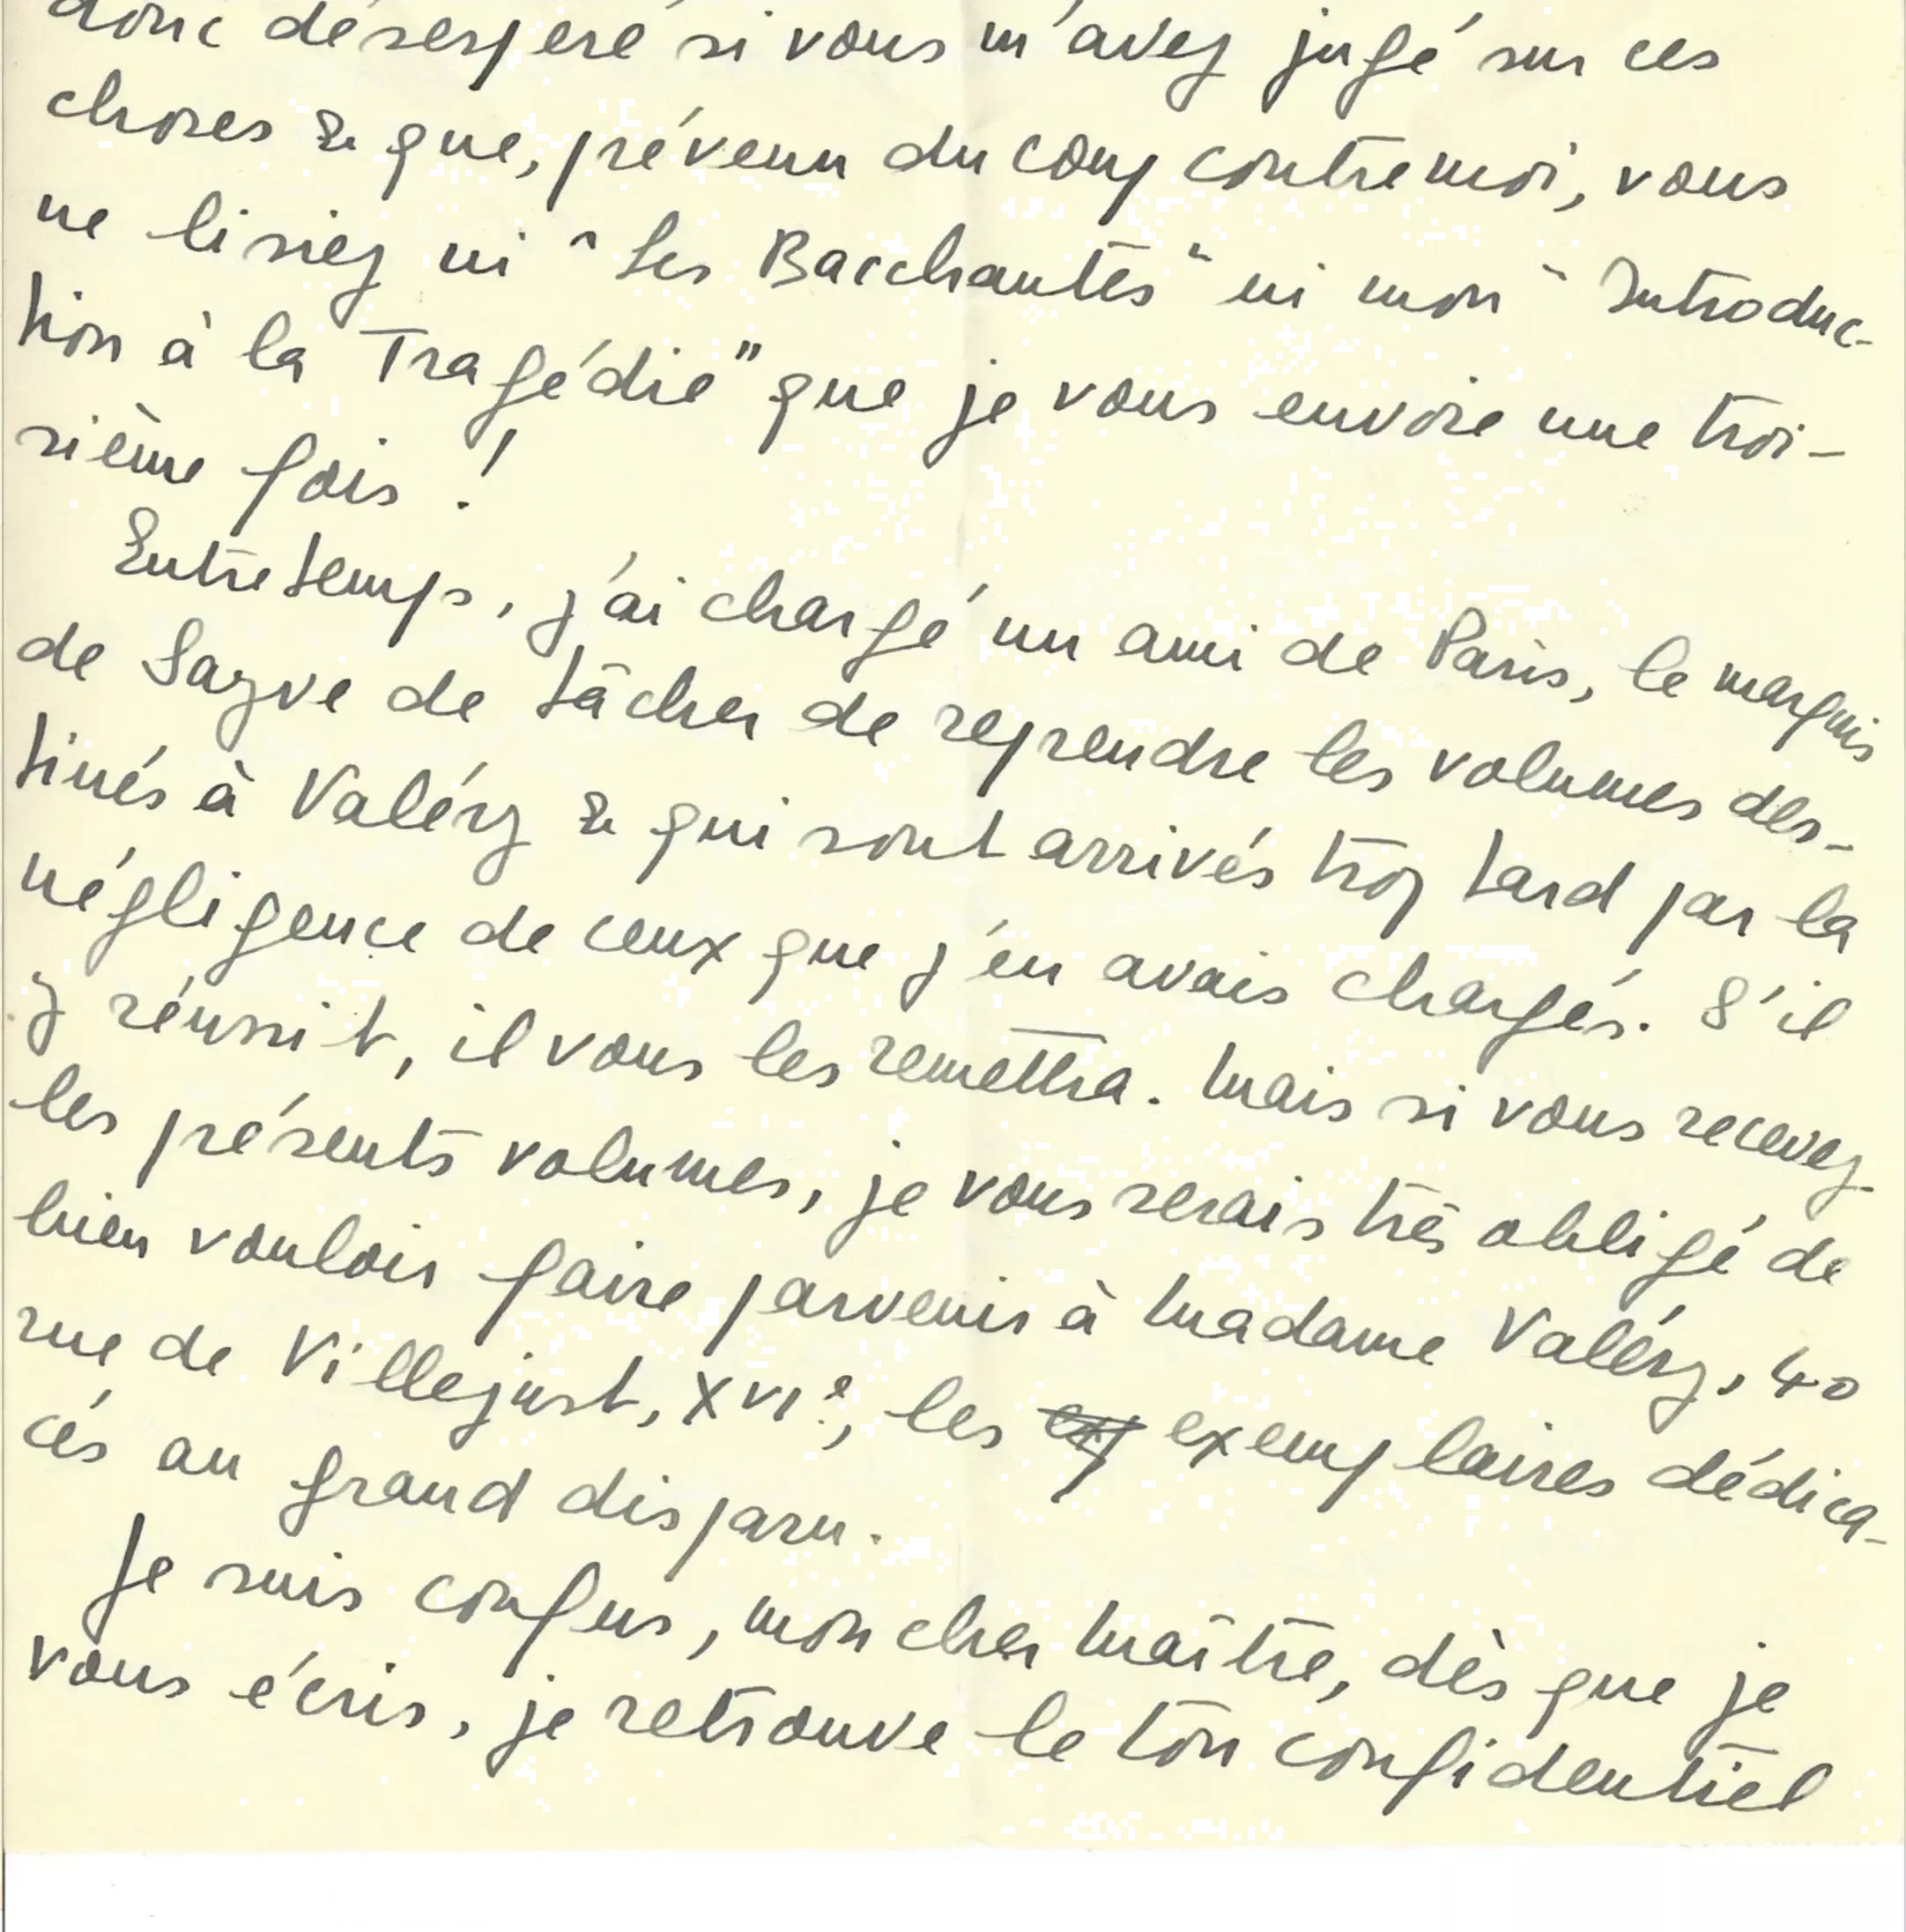 donc désespéré si vous m'avez jugé sur ces
choses & que, prévenu du coup contre moi, vous
ne lisiez ni "Les Bacchantes" ni mon "Introduc-
tion à la Tragédie" que je vous envoie une troi-
sième fois !
Entretemps, j'ai chargé un ami de Paris, le marquis
de Sayve de tâcher de reprendre les volumes des-
tinés à Valéry & qui sont arrivés trop tard par la
négligence de ceux que j'en avais chargés. S'il
y réussit, il vous les remettra. Mais si vous recevez
les présents volumes, je vous serais très obligé de
bien vouloir faire parvenir à Madame Valéry, 40
rue de Villejust, XVIe, les exemplaires dédica-
cés au grand disparu.
Je suis confus, mon cher Maître, dès que je
vous écris, je retrouve le ton confidentiel